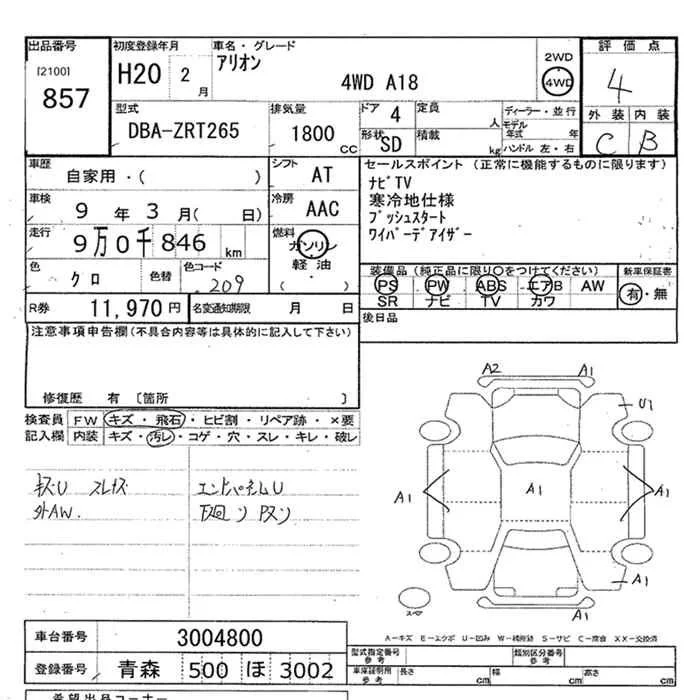 出品番号
[2100]
857
初度登録年月
H20 2月
車名・グレード
アリオン
4WD A18
2WD
4WD
評価点
4
外装 内装
C B
型式
DBA-ZRT265
排気量
1800 CC
ドア 4
形状 SD
定員 人
積載 kg
ディーラー・並行
モデル年式 年
ハンドル 左・右
車歴
自家用・( )
シフト AT
車検
9年3月( 日)
冷房 AAC
走行
9万0千846 km
燃料
ガソリン
軽油
( )
色
クロ
色替
色コード
209
セールスポイント(正常に機能するものに限ります)
ナビTV
寒冷地仕様
プッシュスタート
ワイパーデアイザー
装備品(純正品に限り○をつけてください)
PS PW ABS エアB AW
SR ナビ TV カワ
新車保証書
有・無
R券 11,970円
名変通知期限 月 日
後日品
注意事項申告欄(不具合内容等は具体的に記入して下さい)
修復歴 有 [箇所 ]
検査員 FW キズ・飛石・ヒビ割・リペア跡・×要
記入欄 内装 キズ・汚レ・コゲ・穴・スレ・キレ・破レ
キズU スレキズ
外AW.
エンドパネルU
A2 A1
U1
A1 A1 A1
A1
スペア
A-キズ E-エクボ U-凹み W-補修跡 S-サビ C-腐食 XX-交換済
車台番号 3004800
登録番号 青森 500 ほ 3002
型式指定番号
参考
類別区分番号
参考
車庫証明用
参考
長さ cm 幅 cm 高さ cm
希望出品コーナー